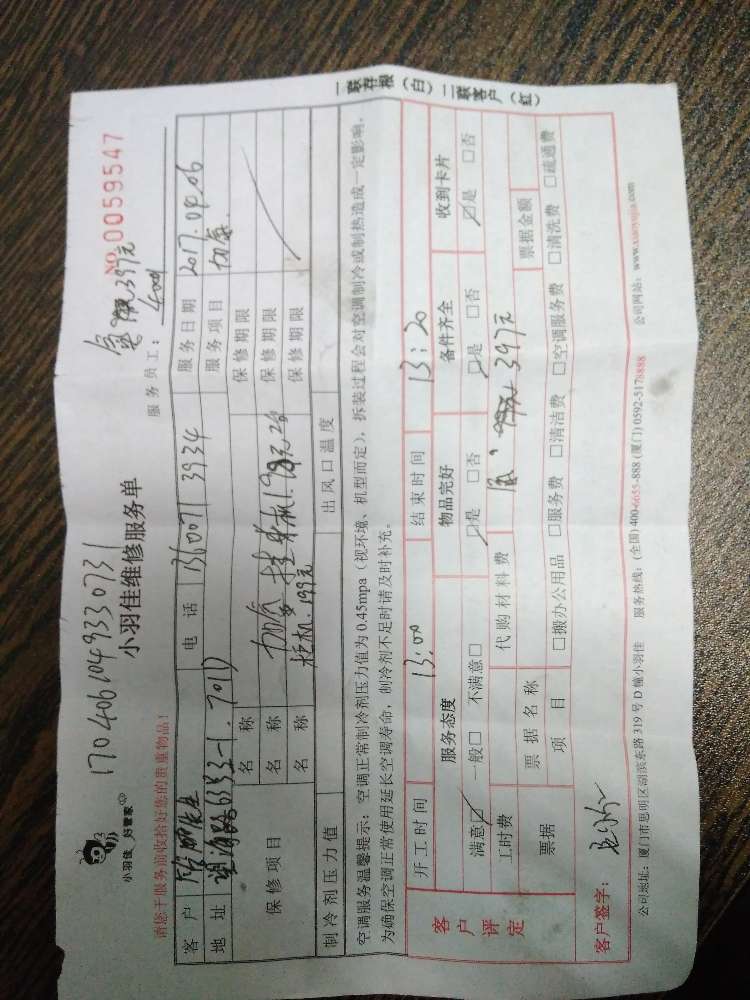 一联存根(白)二联客户(红)
17040610493 30731
小羽佳 好管家
小羽佳维修服务单
NO.0059547
397元
服务员工:
请您于服务前收拾好您的贵重物品!
客户 电话 3934 服务日期 2017.04.06
地址 服务项目
保修项目 名称 保修期限
名称 保修期限
名称 柜机.199元 保修期限
制冷剂压力值 出风口温度
空调服务温馨提示:空调正常制冷剂压力值为0.45mpa(视环境、机型而定),拆装过程会对空调制冷或制热造成一定影响,
为确保空调正常使用延长空调寿命,制冷剂不足时请及时补充。
客户评定 开工时间 13:00 结束时间 13:20
服务态度 物品完好 备件齐全 收到卡片
满意☑ 一般□ 不满意□ ☑是 □否 ☑是 □否 ☑是 □否
工时费 代购材料费 397元
票据 票据名称 票据金额
项目 □搬办公用品 □服务费 □清洁费 □空调服务费 □清洗费 □疏通费
客户签字:
公司地址:厦门市思明区湖滨东路319号D幢小羽佳 服务热线:(全国)400-6655-888 (厦门)0592-5178888 公司网站:www.xiaoyujia.com